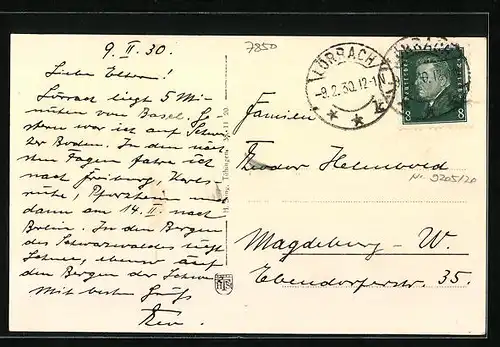 9. II. 30.
Liebe Eltern!
Lörrach liegt 5 Mi-
nuten von Basel. Ge-
stern war ich auf Schwei-
zer Boden. In den näch-
sten Tagen fahre ich
nach Freiburg, Karls-
ruhe, Pforzheim und
dann am 14. II. nach
Berlin. In den Bergen
des Schwarzwaldes liegt
Schnee, ebenso auf
den Bergen der Schweiz
Mit besten Gruß
7850
LÖRRACH
-9.2.30.12-1N
LÖRRACH
8 8
Familie
Theodor Helmbold
Nr. 9205120
Magdeburg - W.
Ebendorferstr. 35.
Tübingen